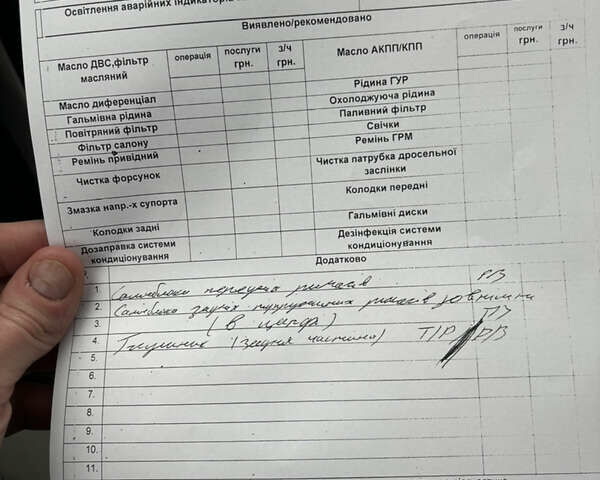 Освітлення аварійних індикаторів
Виявлено/рекомендовано
операція послуги грн. з/ч грн. операція послуги грн. з/ч грн.
Масло ДВС,фільтр масляний Масло АКПП/КПП
Масло диференціал Рідина ГУР
Гальмівна рідина Охолоджуюча рідина
Повітряний фільтр Паливний фільтр
Фільтр салону Свічки
Ремінь привідний Ремінь ГРМ
Чистка форсунок Чистка патрубка дросельної заслінки
Змазка напр.-х супорта Колодки передні
Колодки задні Гальмівні диски
Дозаправка системи кондиціонування Дезінфекція системи кондиціонування
Додатково
1. Сайлнблоки передних ричагів РВ
2. Сайлнблок задніх ричагів зовнішні
3. (в цапфі)
4. Глушник (задня частина) Т/Р РВ
5.
6.
7.
8.
9.
10.
11.